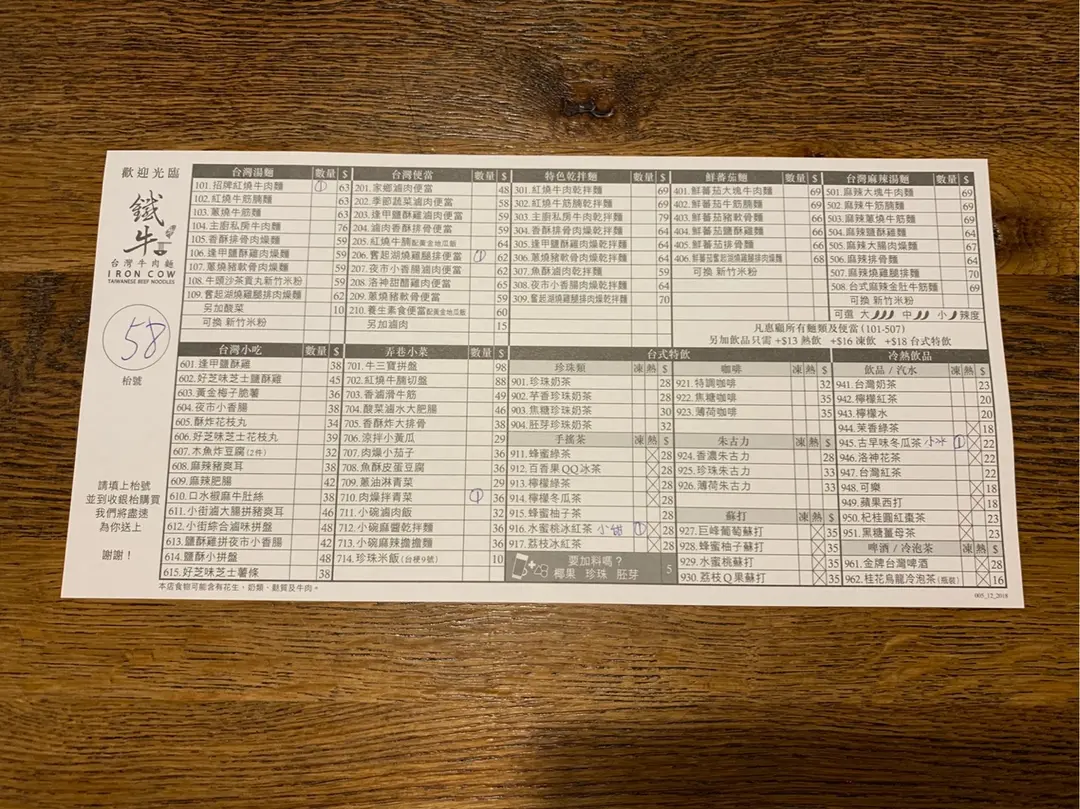 歡迎光臨
鐵牛
台灣牛肉麵
IRON COW
TAIWANESE BEEF NOODLES
58
枱號
請填上枱號
並到收銀枱購買
我們將盡速
為你送上
謝謝！
台灣湯麵 數量 $
101. 招牌紅燒牛肉麵 ① 63
102. 紅燒牛筋腩麵 63
103. 蔥燒牛筋麵 63
104. 主廚私房牛肉麵 76
105. 香酥排骨肉燥麵 59
106. 逢甲鹽酥雞肉燥麵 59
107. 蔥燒豬軟骨肉燥麵 59
108. 牛頭沙茶貢丸新竹米粉 59
109. 奮起湖燒雞腿排肉燥麵 62
另加酸菜 10
可換 新竹米粉
台灣便當 數量 $
201. 家鄉滷肉便當 48
202. 季節蔬菜滷肉便當 58
203. 逢甲鹽酥雞滷肉便當 59
204. 滷肉香酥排骨便當 59
205. 紅燒牛腩配黃金地瓜飯 64
206. 奮起湖燒雞腿排便當 ① 62
207. 夜市小香腸滷肉便當 62
208. 洛神甜醋雞肉便當 65
209. 蔥燒豬軟骨便當 62
210. 養生素食便當配黃金地瓜飯 60
另加滷肉 15
特色乾拌麵 數量 $
301. 紅燒牛肉乾拌麵 69
302. 紅燒牛筋腩乾拌麵 69
303. 主廚私房牛肉乾拌麵 79
304. 香酥排骨肉燥乾拌麵 64
305. 逢甲鹽酥雞肉燥乾拌麵 64
306. 蔥燒豬軟骨肉燥乾拌麵 64
307. 魚酥滷肉乾拌麵 59
308. 夜市小香腸肉燥乾拌麵 64
309. 奮起湖燒雞腿排肉燥乾拌麵 70
鮮蕃茄麵 數量 $
401. 鮮蕃茄大塊牛肉麵 69
402. 鮮蕃茄牛筋腩麵 69
403. 鮮蕃茄豬軟骨麵 66
404. 鮮蕃茄鹽酥雞麵 66
405. 鮮蕃茄排骨麵 66
406. 鮮蕃茄奮起湖燒雞腿排肉燥麵 68
可換 新竹米粉
台灣麻辣湯麵 數量 $
501. 麻辣大塊牛肉麵 69
502. 麻辣牛筋腩麵 69
503. 麻辣蔥燒牛筋麵 69
504. 麻辣鹽酥雞麵 64
505. 麻辣大腸肉燥麵 67
506. 麻辣排骨麵 64
507. 麻辣燒雞腿排麵 70
508. 台式麻辣金肚牛筋麵 69
可換 新竹米粉
可選 大 中 小 辣度
凡惠顧所有麵類及便當 (101-507)
另加飲品只需 +$13 熱飲 +$16 凍飲 +$18 台式特飲
台灣小吃 數量 $
601. 逢甲鹽酥雞 38
602. 好芝味芝士鹽酥雞 45
603. 黃金梅子脆薯 36
604. 夜市小香腸 38
605. 酥炸花枝丸 34
606. 好芝味芝士花枝丸 39
607. 木魚炸豆腐(2件) 32
608. 麻辣豬爽耳 38
609. 麻辣肥腸 42
610. 口水椒麻牛肚絲 38
611. 小街台大腸拼豬爽耳 46
612. 小街綜合滷味拼盤 48
613. 鹽酥雞拼夜市小香腸 42
614. 鹽酥小拼盤 48
615. 好芝味芝士薯條 38
弄巷小菜 數量 $
701. 牛三寶拼盤 98
702. 紅燒牛腩切盤 88
703. 香滷滑牛筋 49
704. 酸菜滷水大肥腸 46
705. 香酥炸大排骨 38
706. 涼拌小黃瓜 29
707. 肉燥小茄子 36
708. 魚酥皮蛋豆腐 36
709. 蔥油淋青菜 29
710. 肉燥拌青菜 ① 36
711. 小碗滷肉飯 32
712. 小碗麻醬乾拌麵 36
713. 小碗麻辣擔擔麵 36
714. 珍珠米飯(台梗9號) 10
台式特飲
珍珠類 凍 熱 $
901. 珍珠奶茶 28
902. 芋香珍珠奶茶 28
903. 焦糖珍珠奶茶 30
904. 胚芽珍珠奶茶 32
手搖茶 凍 熱 $
911. 蜂蜜綠茶 28
912. 百香果QQ冰茶 28
913. 檸檬綠茶 28
914. 檸檬冬瓜茶 28
915. 蜂蜜柚子茶 28
916. 水蜜桃冰紅茶 小甜 ① 28
917. 荔枝冰紅茶 28
要加料嗎？
椰果 珍珠 胚芽 5
咖啡 凍 熱 $
921. 特調咖啡 32
922. 焦糖咖啡 35
923. 薄荷咖啡 35
朱古力 凍 熱 $
924. 香濃朱古力 28
925. 珍珠朱古力 33
926. 薄荷朱古力 33
蘇打 凍 熱 $
927. 巨峰葡萄蘇打 35
928. 蜂蜜柚子蘇打 35
929. 水蜜桃蘇打 35
930. 荔枝Q果蘇打 35
冷熱飲品
飲品 / 汽水 凍 熱 $
941. 台灣奶茶 23
942. 檸檬紅茶 20
943. 檸檬水 20
944. 茉香綠茶 18
945. 古早味冬瓜茶 小冰 ① 22
946. 洛神花茶 22
947. 台灣紅茶 22
948. 可樂 18
949. 蘋果西打 18
950. 杞桂圓紅棗茶 23
951. 黑糖薑母茶 23
啤酒 / 冷泡茶 凍 熱 $
961. 金牌台灣啤酒 28
962. 桂花烏龍冷泡茶(瓶裝) 16
本店食物可能含有花生、奶類、麩質及牛肉。
005_12_2018